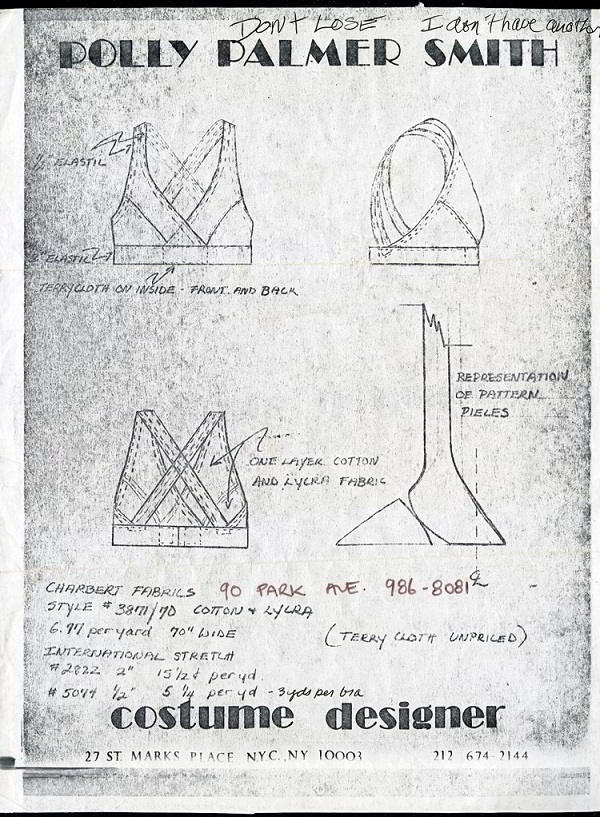 DON'T LOSE I don't have another
POLLY PALMER SMITH
1/2" ELASTIC
2" ELASTIC
TERRYCLOTH ON INSIDE - FRONT AND BACK
REPRESENTATION
OF PATTERN
PIECES
ONE LAYER COTTON
AND LYCRA FABRIC
CHARBERT FABRICS 90 PARK AVE. 986-8081
STYLE # /70 COTTON & LYCRA
per yard 70" WIDE (TERRY CLOTH UNPRICED)
INTERNATIONAL STRETCH
#2822 2" 15 1/2¢ per yd.
1/2" 5 1/4 per yd - 3 yds per bra
costume designer
27 ST. MARKS PLACE NYC., NY 10003 212 674-2144